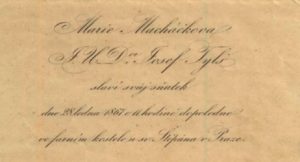 Marie Macháčkova
J. U. Dr. Josef Tylš
slaví svůj sňatek
dne 28 ledna 1867 o 11 hodině dopoledne
ve farním kostele u sv. Štěpána v Praze.